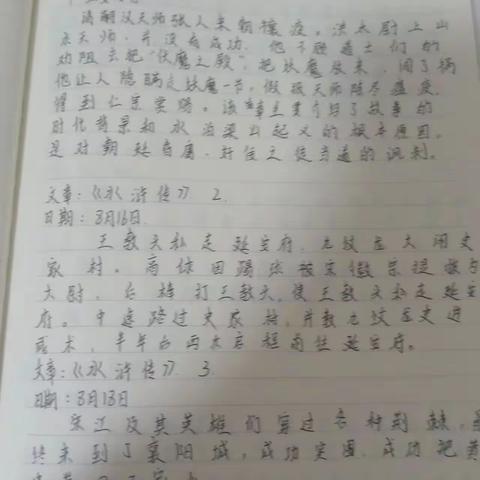 请嗣汉天师张人来朝禳疫。洪太尉上山
求天师，并没有成功，他不顾道士们的
劝阻去把"伏魔之殿"，把妖魔放来，闯了祸
他让人隐瞒走妖魔一节，假报天师除尽瘟疫，
得到仁宗赏赐。该章主要介绍了故事的
时代背景和水泊梁山起义的根本原因，
是对朝廷奇腐，奸佞之徒当道的讽刺。
文章：《水浒传》 2.
日期：3月16日.
王教头私走延安府，九纹龙大闹史
家村。高俅因踢球被宋徽宗提拔为
太尉，后棒打王教头，使王教头私走延安
府。中途路过史家村，并教九纹龙史进
武术，半年后再太启程前往延安府。
文章：《水浒传》 3.
日期：3月18日
宋江及其英雄们穿过各种荆棘，
终来到了襄阳城，成功突围，成功把黄